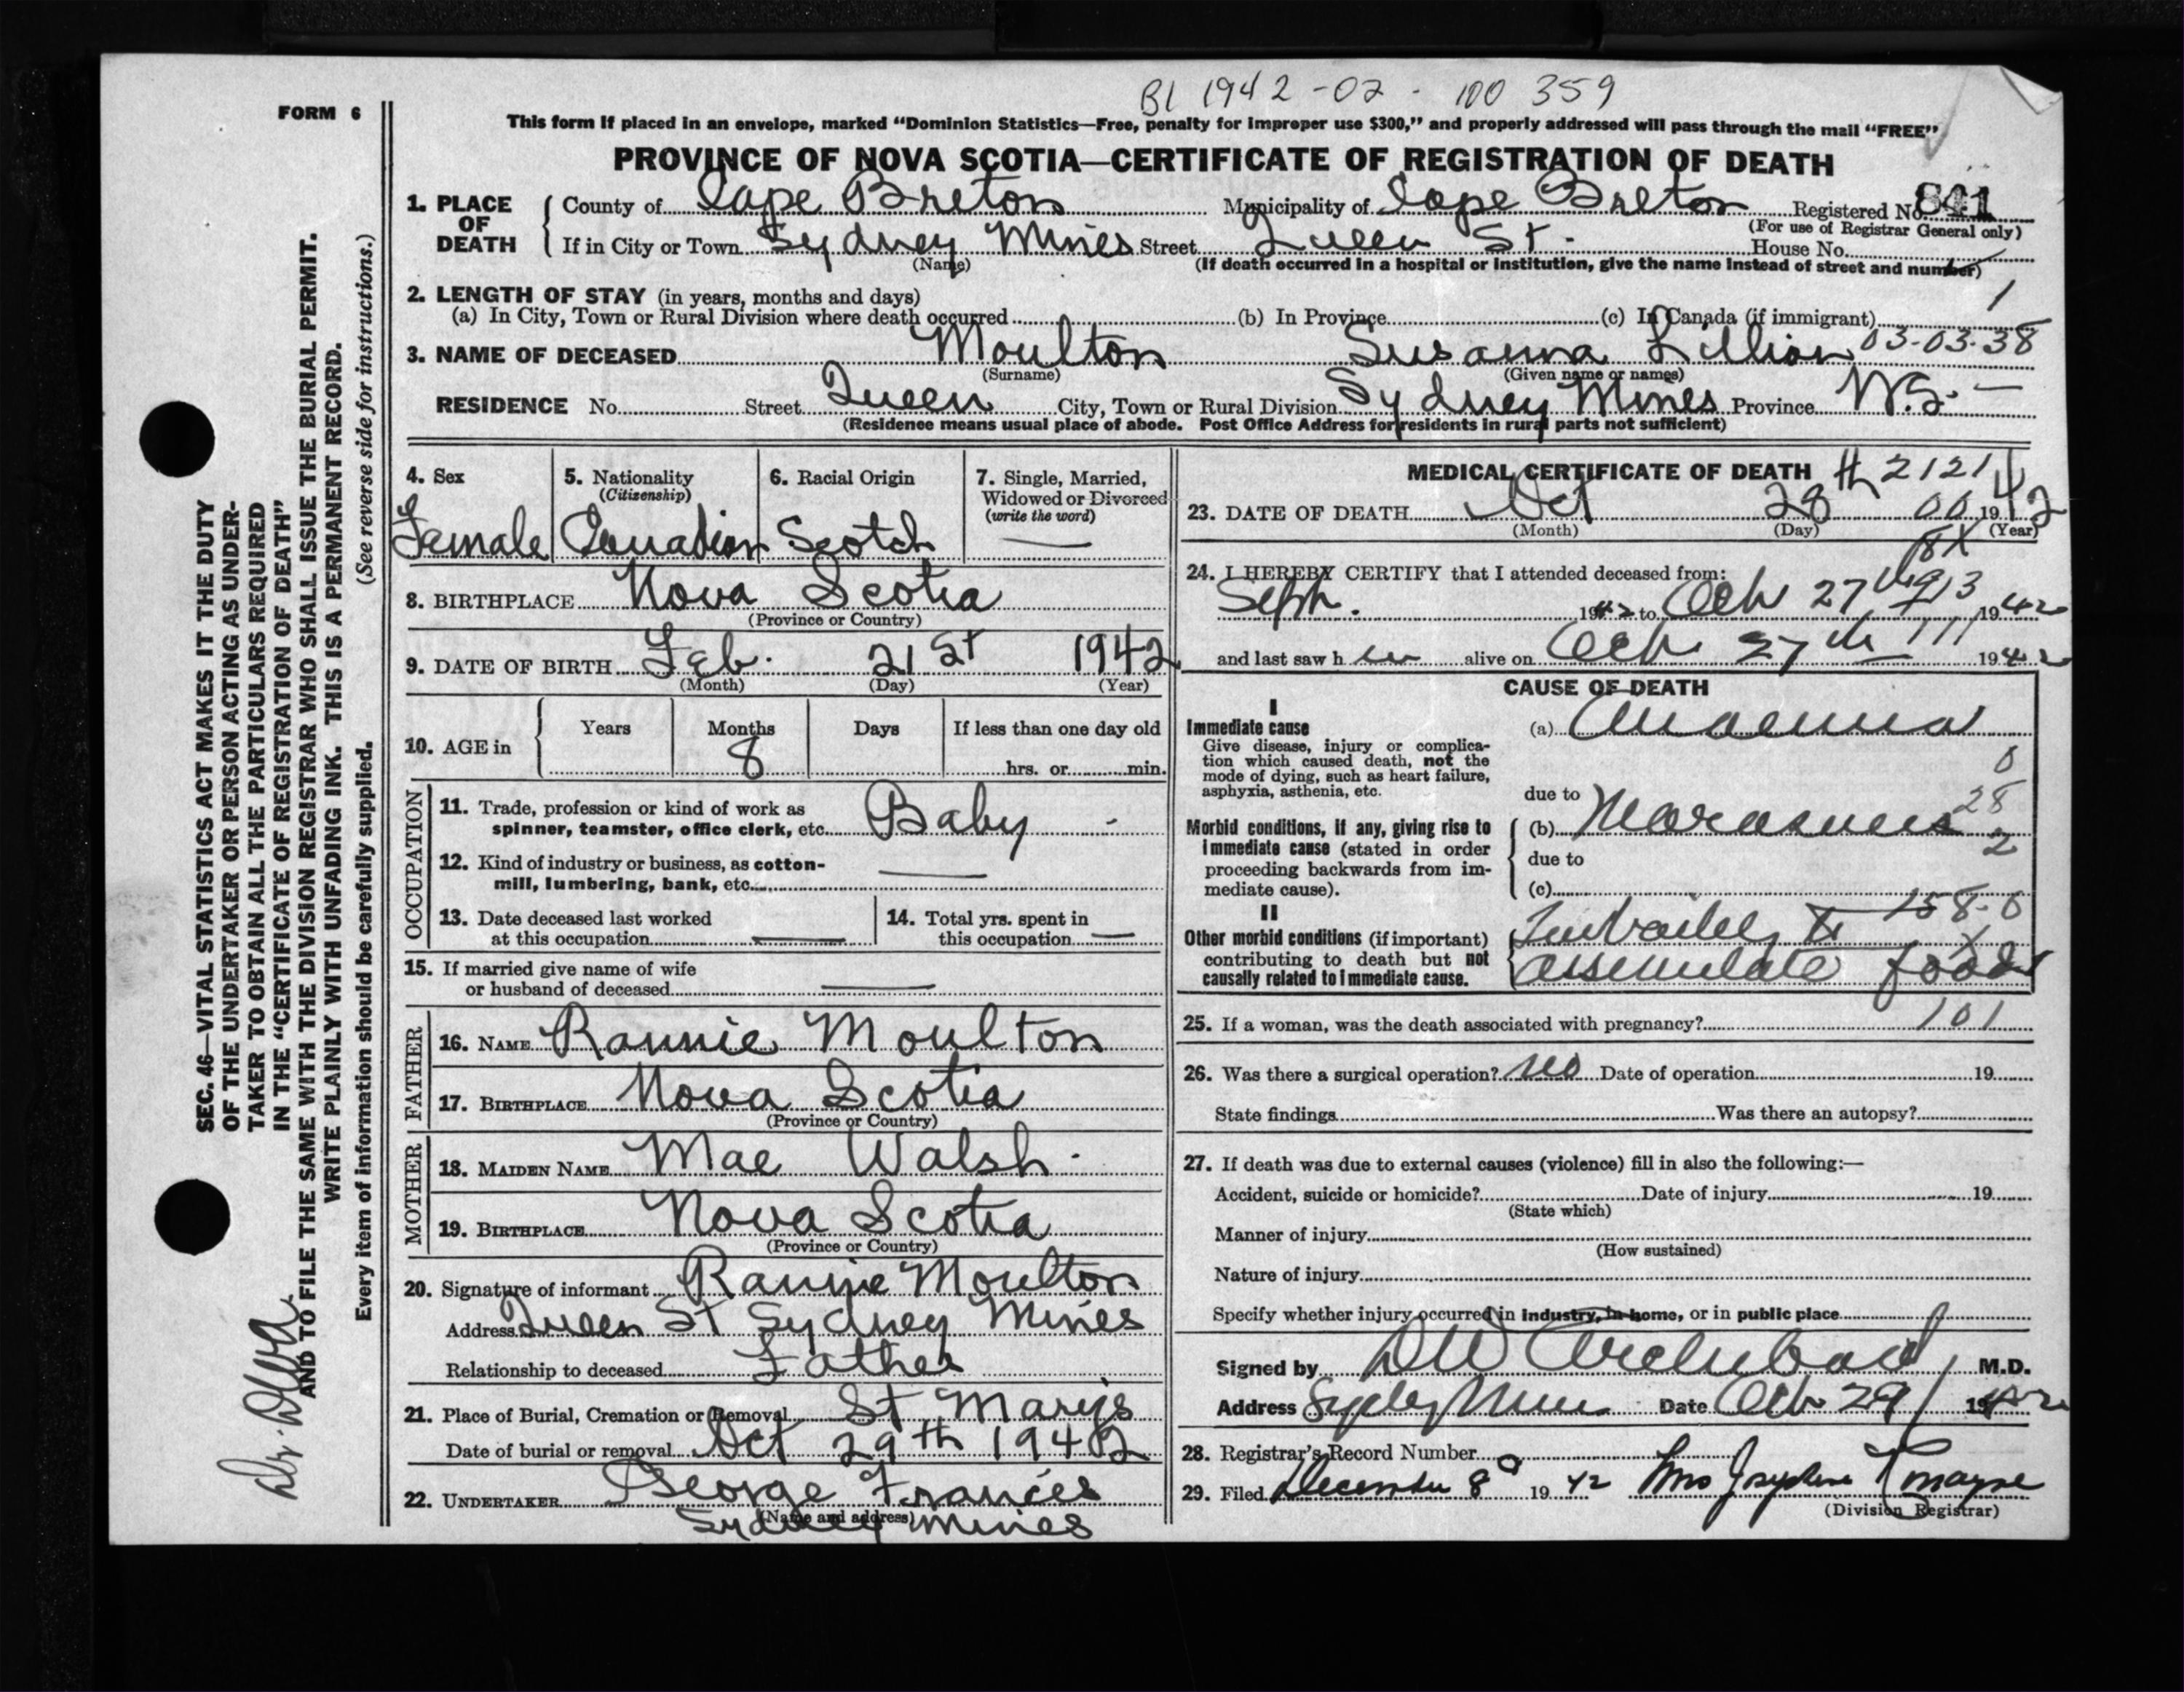 B1 1942-02-100359
FORM 6
This form if placed in an envelope, marked “Dominion Statistics—Free, penalty for improper use $300,” and properly addressed will pass through the mail “FREE”
PROVINCE OF NOVA SCOTIA—CERTIFICATE OF REGISTRATION OF DEATH
1. PLACE OF DEATH County of Cape Breton Municipality of Cape Breton Registered No. 841
(For use of Registrar General only)
If in City or Town Sydney Mines Street Queen St. House No.
(Name) (If death occurred in a hospital or institution, give the name instead of street and number)
2. LENGTH OF STAY (in years, months and days) 1
(a) In City, Town or Rural Division where death occurred (b) In Province (c) In Canada (if immigrant)
3. NAME OF DECEASED Moulton Susanna Lillian 03-03-38
(Surname) (Given name or names)
RESIDENCE No. Street Queen City, Town or Rural Division Sydney Mines Province N.S. —
(Residence means usual place of abode. Post Office Address for residents in rural parts not sufficient)
4. Sex 5. Nationality 6. Racial Origin 7. Single, Married,
(Citizenship) Widowed or Divorced
(write the word)
Female Canadian Scotch —
8. BIRTHPLACE Nova Scotia
(Province or Country)
9. DATE OF BIRTH Feb. 21st 1942
(Month) (Day) (Year)
10. AGE in Years Months Days If less than one day old
8 hrs. or min.
OCCUPATION
11. Trade, profession or kind of work as
spinner, teamster, office clerk, etc. Baby -
12. Kind of industry or business, as cotton-
mill, lumbering, bank, etc. —
13. Date deceased last worked
at this occupation —
14. Total yrs. spent in
this occupation —
15. If married give name of wife
or husband of deceased —
FATHER
16. NAME Rannie Moulton
17. BIRTHPLACE Nova Scotia
(Province or Country)
MOTHER
18. MAIDEN NAME Mae Walsh.
19. BIRTHPLACE Nova Scotia
(Province or Country)
20. Signature of informant Rannie Moulton
Address Queen St Sydney Mines
Relationship to deceased Father
21. Place of Burial, Cremation or Removal St Mary's
Date of burial or removal Oct 29th 1942
22. UNDERTAKER George Francis
(Name and address)
Sydney Mines
MEDICAL CERTIFICATE OF DEATH # 2121
23. DATE OF DEATH Oct 28th 00 1942
(Month) (Day) (Year)
24. I HEREBY CERTIFY that I attended deceased from:
Sept. 1942 to Oct 27th 1942
and last saw h er alive on Oct 27th 111 1942
CAUSE OF DEATH
I
Immediate cause
Give disease, injury or complica-
tion which caused death, not the
mode of dying, such as heart failure,
asphyxia, asthenia, etc.
(a) Anaemia
0
due to
28
Morbid conditions, if any, giving rise to
immediate cause (stated in order
proceeding backwards from im-
mediate cause).
(b) Marasmus
2
due to
(c)
158-0
II
Other morbid conditions (if important)
contributing to death but not
causally related to immediate cause.
Inability to
assimilate food
25. If a woman, was the death associated with pregnancy? 101
26. Was there a surgical operation? No Date of operation 19
State findings Was there an autopsy?
27. If death was due to external causes (violence) fill in also the following:—
Accident, suicide or homicide? Date of injury 19
(State which)
Manner of injury
(How sustained)
Nature of injury
Specify whether injury occurred in industry, in home, or in public place
Signed by DW Archibald M.D.
Address Sydney Mines Date Oct 29 1942
28. Registrar's Record Number
29. Filed December 8 1942 Mrs Josephine
(Division Registrar)
SEC. 46—VITAL STATISTICS ACT MAKES IT THE DUTY
OF THE UNDERTAKER OR PERSON ACTING AS UNDER-
TAKER TO OBTAIN ALL THE PARTICULARS REQUIRED
IN THE “CERTIFICATE OF REGISTRATION OF DEATH”
AND TO FILE THE SAME WITH THE DIVISION REGISTRAR WHO SHALL ISSUE THE BURIAL PERMIT.
WRITE PLAINLY WITH UNFADING INK. THIS IS A PERMANENT RECORD.
Every item of information should be carefully supplied. (See reverse side for instructions.)